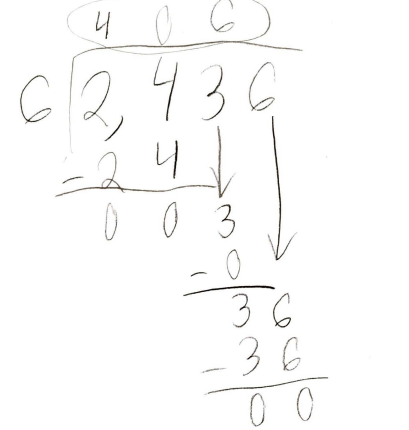 4 0 6
6 2,4 3 6
- 2 4
0 0 3
- 0
3 6
- 3 6
0 0